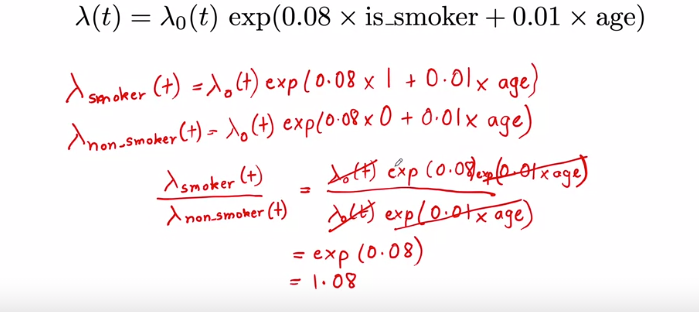 λ(t) = λ₀(t) exp(0.08 × is_smoker + 0.01 × age)
λ smoker (t) = λ₀(t) exp(0.08 × 1 + 0.01 × age)
λ non_smoker (t) = λ₀(t) exp(0.08 × 0 + 0.01 × age)
λ smoker (t) / λ non_smoker (t) = λ₀(t) exp(0.08) exp(0.01 × age) / λ₀(t) exp(0.01 × age)
= exp(0.08)
= 1.08